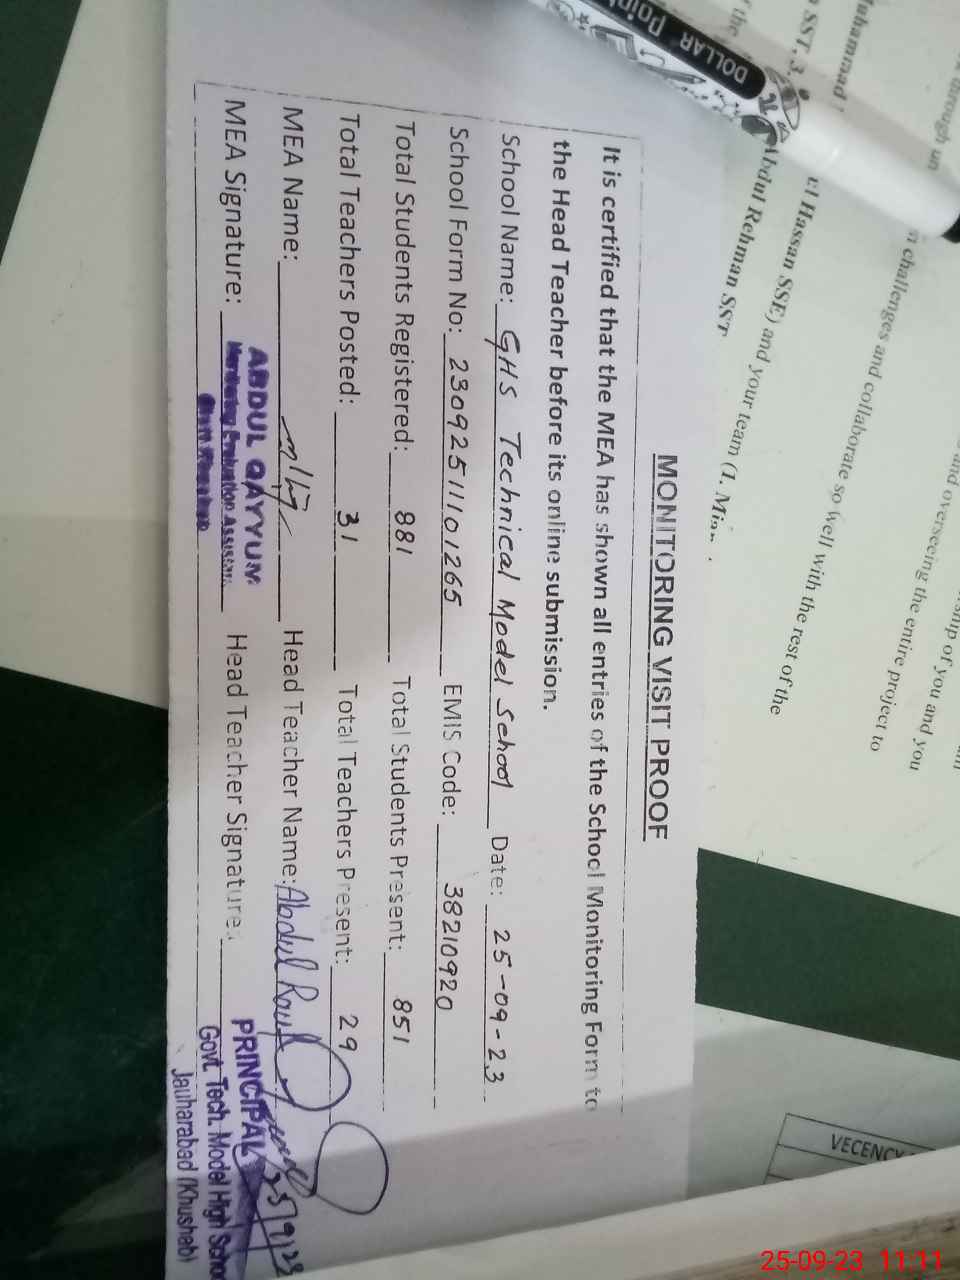 MONITORING VISIT PROOF
It is certified that the MEA has shown all entries of the School Monitoring Form to
the Head Teacher before its online submission.
School Name: GHS Technical Model School Date: 25-09-23
School Form No: 23092511101265 EMIS Code: 38210920
Total Students Registered: 881 Total Students Present: 851
Total Teachers Posted: 31 Total Teachers Present: 29
MEA Name: Head Teacher Name: Abdul Rauf
MEA Signature: ABDUL QAYYUM Head Teacher Signature:
Monitoring Evaluation Assistant
PRINCIPAL 25/9/23
Govt. Tech. Model High School
Jauharabad (Khushab)
DOLLAR Point
through
challenges and collaborate so well with the rest of the
and overseeing the entire project to
ship of you and you
SST, 3.
el Hassan SSE) and your team (1.
Abdul Rehman SST
VECENCY
25-09-23 11:11